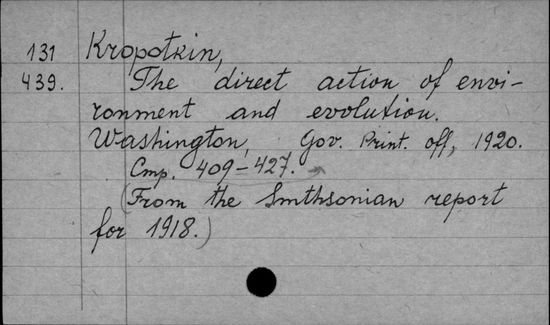 131 Kropotkin,
439. The direct action of envi-
ronment and evolution.
Washington, Gov. Print. off, 1920.
Cmp. 409-427.
(From the Smthsonian report
for 1918.)